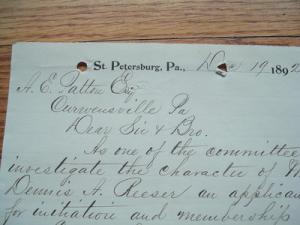 St. Petersburg, Pa., Dec 19 1892
A. E. Patton Esq
Curwensville Pa
Dear Sir & Bro.
As one of the committee
investigate the character of
Dennis A. Reeser an applican
for initiation and membership